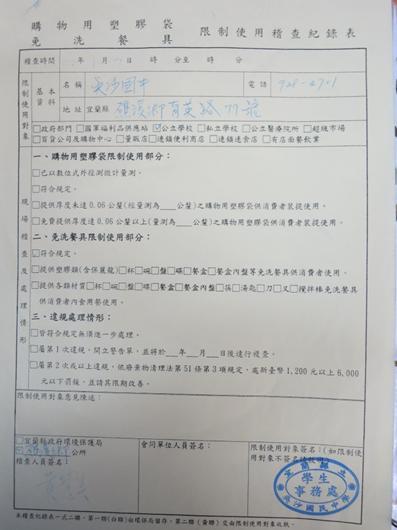 購物用塑膠袋
免洗餐具 限制使用稽查紀錄表
稽查時間 年 月 日 時 分至 時 分
限制使用對象
基本資料
名稱 吳沙國中 電話
地址 宜蘭縣 礁溪鄉育英路77號
□政府部門 □國軍福利品供應站 ☑公立學校 □私立學校 □公立醫療院所 □超級市場
□百貨公司及購物中心 □量販店 □連鎖便利商店 □連鎖速食店 □有店面餐飲業
現場稽查及處理情形
一、購物用塑膠袋限制使用部分:
□已以數位式外徑測微計量測。
□符合規定。
□提供厚度未達0.06公釐(經量測為___公釐)之購物用塑膠袋供消費者裝提使用。
□免費提供厚度達0.06以上(量測為___公釐)之購物用塑膠袋供消費者裝提使用。
二、免洗餐具限制使用部分:
☑符合規定。
□提供塑膠類(含保麗龍)□杯□碗□盤□碟□餐盒□餐盒內盤等免洗餐具供消費者使用。
□提供各類材質□杯□碗□盤□碟□餐盒□餐盒內盤□筷□湯匙□刀□叉□攪拌棒免洗餐具
供消費者內食用餐使用。
三、違規處理情形:
□皆符合規定無須進一步處理。
□屬第1次違規,開立警告單,並將於___年___月___日後進行複查。
□屬第2次或以上違規,依廢棄物清理法第51條第3項規定,處新臺幣1,200元以上6,000
元以下罰鍰,並請其限期改善。
限制使用對象意見陳述:
□宜蘭縣政府環境保護局
☑礁溪鄉公所
稽查人員簽名:
會同單位人員簽名:
限制使用對象簽名:(如限制使
用對象不簽名
宜蘭縣立
學生
事務處
吳沙國民中學
本稽查紀錄表一式二聯,第一聯(白聯)由環保局留存,第二聯(黃聯)交由限制使用對象收執。